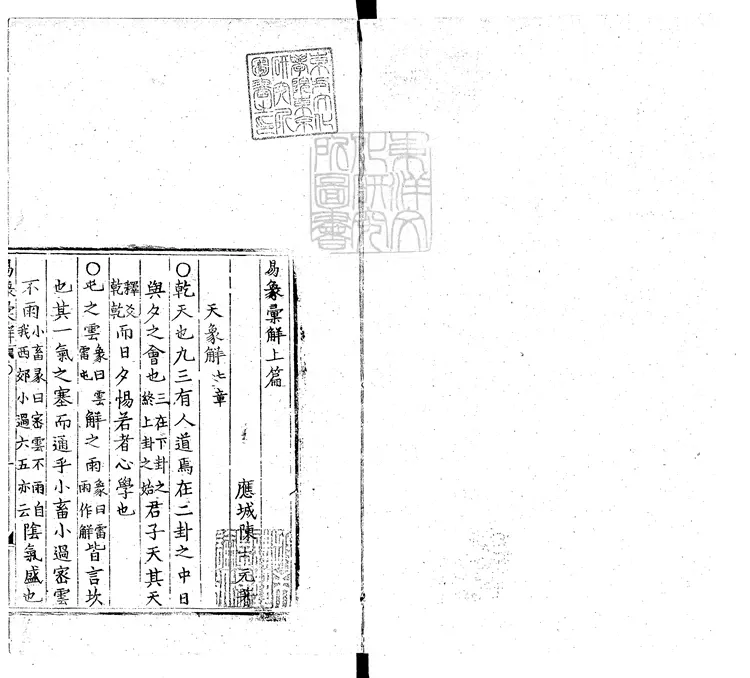 易象彙解上篇
應城陳士元著
天象解七章
○乾天也九三有人道焉在二卦之中日
與夕之會也三在下卦之終上卦之始君子天其天
釋爻乾乾而日夕惕若者心學也
○屯之雲象曰雲雷屯解之雨象曰雷雨作解皆言坎
也其一氣之塞而通乎小畜小過密雲
不雨小畜彖曰密雲不雨自我西郊小過六五亦云陰氣盛也
東洋文化研究所圖書